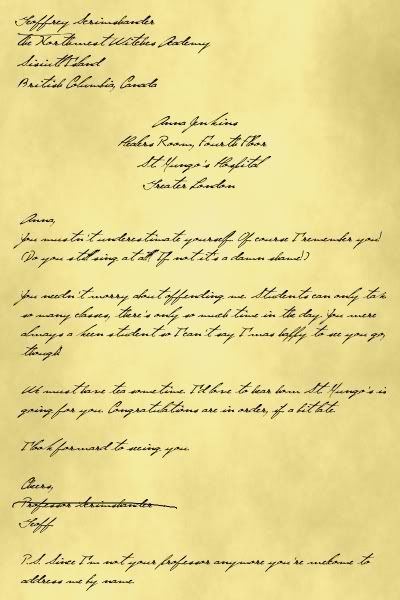 Geoffrey Scrimshander
the Northwest Witches Academy
Sisiutl Island
British Columbia, Canada
Anna Jenkins
Healers Room, Fourth Floor
St Mungo's Hospital
Greater London
Anna,
You mustn't underestimate yourself. Of course I remember you!
(Do you still sing at all? If not it's a damn shame!)
You needn't worry about offending me. Students can only take
so many classes, there's only so much time in the day. You were
always a keen student so I can't say I was happy to see you go,
though.
We must have tea sometime. I'd love to hear how St Mungo's is
going for you. Congratulations are in order, if a bit late.
I look forward to seeing you.
Cheers,
Professor Scrimshander
Geoff
P.S. Since I'm not your professor anymore you're welcome to
address me by name.